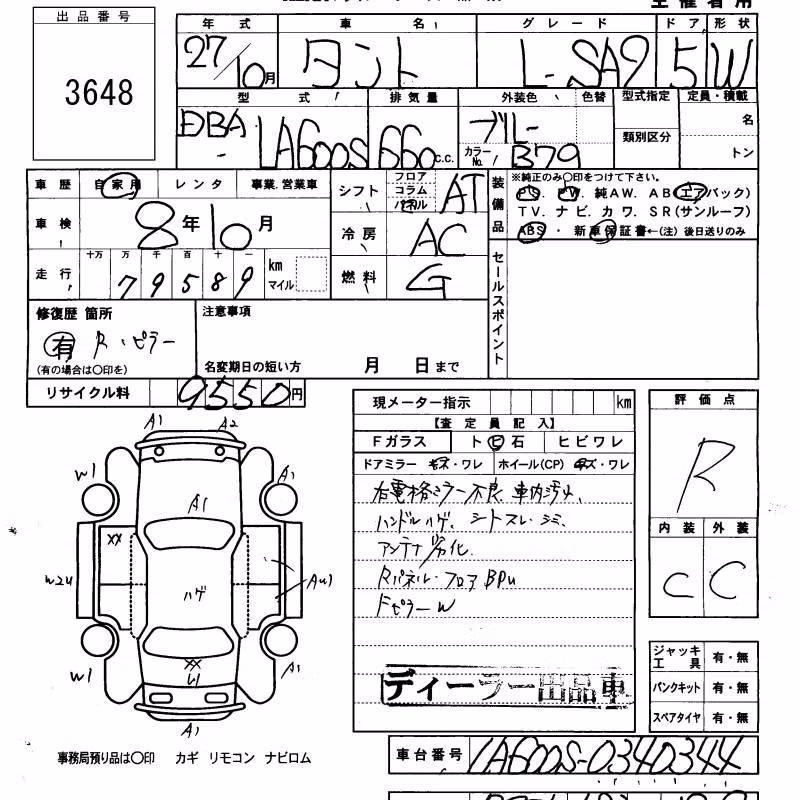 出品番号
3648
年式 車名 グレード ドア 形状
27/10月 タント L-SA9 5 W
型式 排気量 外装色 色替 型式指定 定員・積載
DBA- LA600S 660c.c. ブルー
類別区分 名
カラーNo. B79 トン
車歴 自家用 レンタ 事業.営業車
車検 8年10月
走行 十万 万 千 百 十 一
79589 km マイル
シフト フロア コラム パネル AT
冷房 AC
燃料 G
装備品 ※純正のみ〇印をつけて下さい。
PS. PW. 純AW. AB(エアバック)
TV. ナビ. カワ. SR(サンルーフ)
ABS ・ 新車保証書←(注) 後日送りのみ
セールスポイント
修復歴 箇所
有 R・ピラー
(有の場合は〇印を)
注意事項
名変期日の短い方 月 日まで
リサイクル料 9550円
現メーター指示 km
【査定員記入】
Fガラス トビ石 ヒビワレ
ドアミラー キズ・ワレ ホイール(CP) キズ・ワレ
右電格ミラー不良 車内汚れ、
ハンドルハゲ、シートスレ・シミ、
アンテナ劣化
Rパネル・フロア BPu
Fピラー W
ディーラー出品車
評価点
R
内装 外装
C C
ジャッキ工具 有・無
パンクキット 有・無
スペアタイヤ 有・無
A1 A2
W1 A1
A1
XX
W2U AU1
ハゲ
W1 XX A1
U1
A1
事務局預り品は〇印 カギ リモコン ナビロム
車台番号 LA600S-0340344